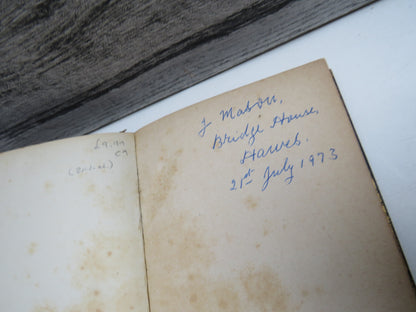 £9.99
C9
J Mabon,
Bridge House,
Hawes.
21st July 1973